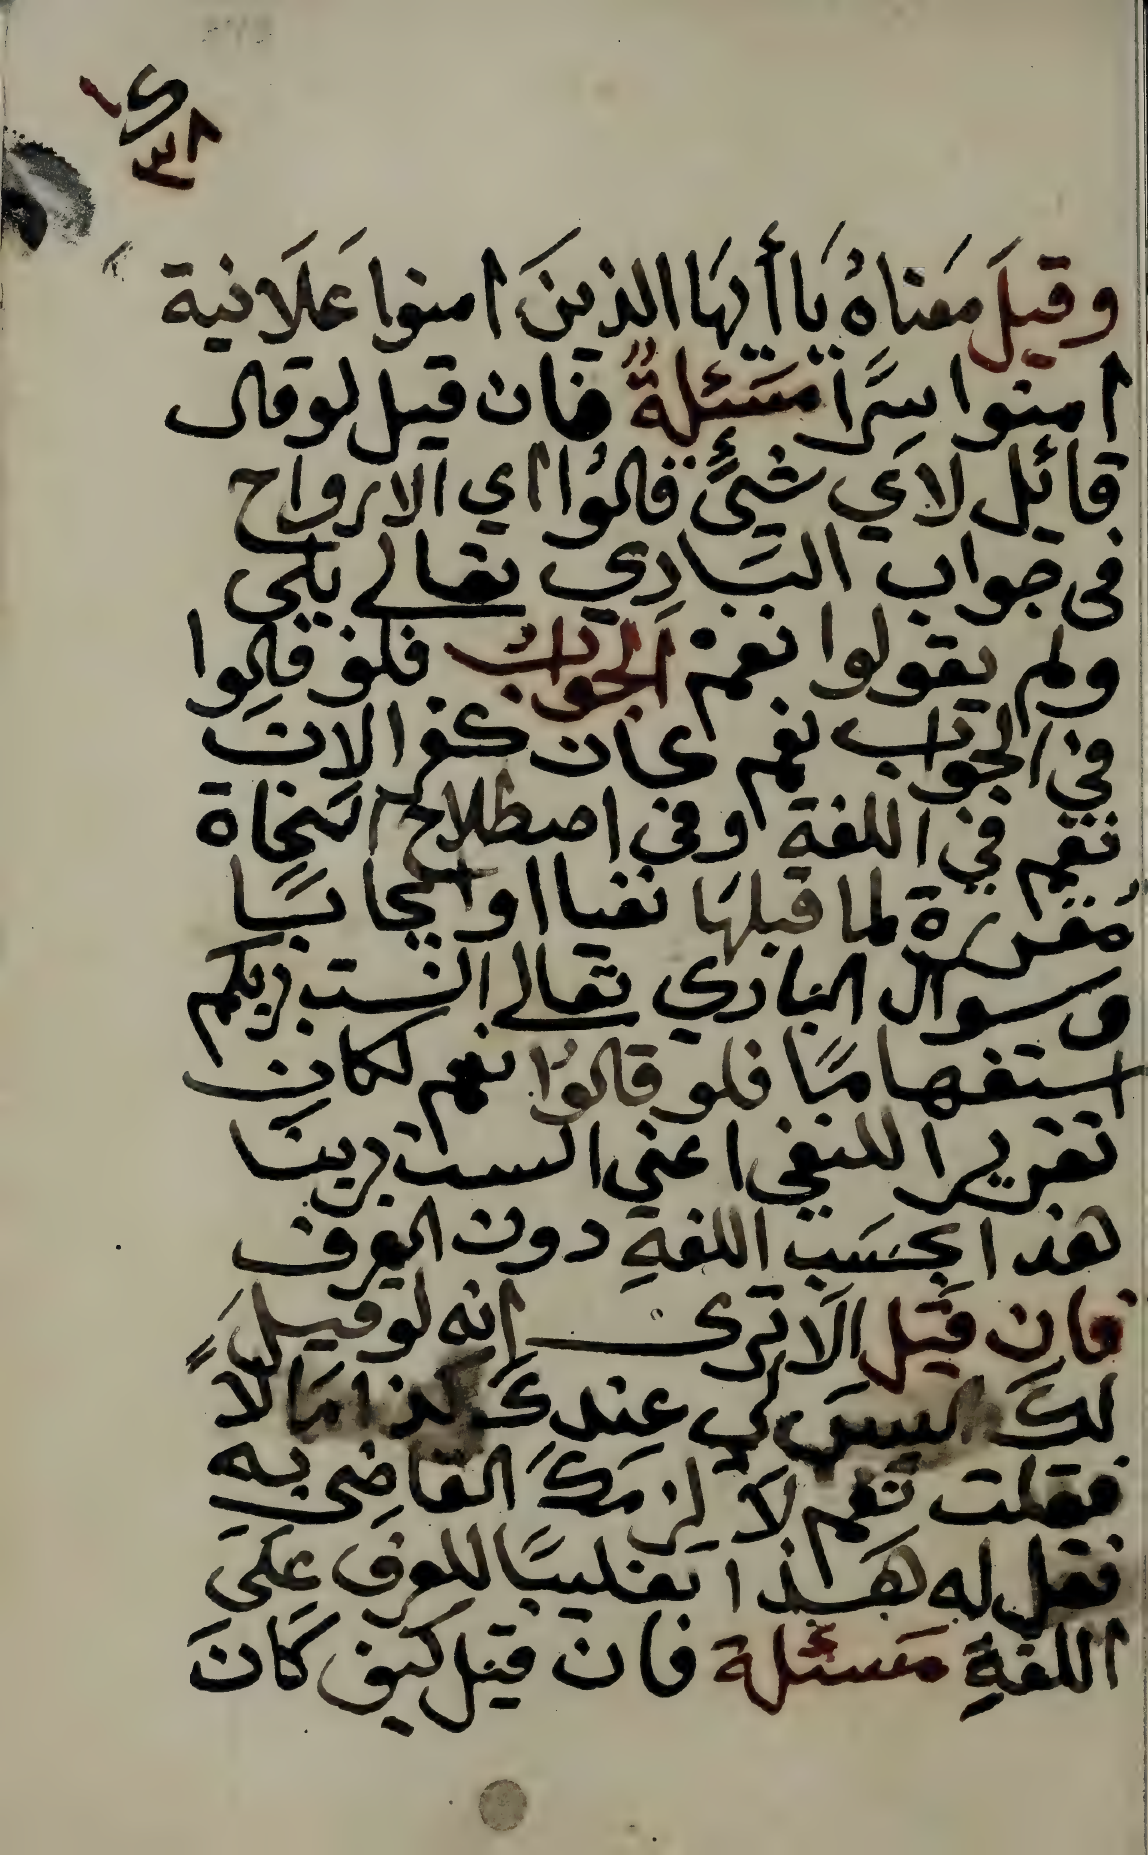 ٣٨
وقيلَ مَعناهُ يَا أَيهَا الذينَ امنوا عَلَانية
امنوا سِرًّا مَسَئلةٌ فان قيل لو قال
قائل لاَي شيئٍ قالوُا اي الارواح
فى جواب البَارِي تعالے بَلى
ولم يقولوا نعمْ الجَوابُ فلو قالِوا
في الجوَاب نعم لكان كفرا لانَ
نعم في اللغة وفى اصطلاح النحاة
مُقررة لما قبلهَا نفيا او ايجابًا
وسوال البَاري تعالے الست بربكم
استفهامًا فلو قالوُا نعم لكان
تقريرا للنفي اعني الست بربنا
هذا بحسَب اللغةِ دون العرف
فان قيَل الَا ترى انه لو قيلَ
لكَ اليسَ لي عندكَ كذا مَالًا
فقلت نعم لَا لزمكَ القاضى به
نقل له هَذا تغليبًا للعرف علىَ
اللغةِ مَسئلة فان قيل كيف كَانَ